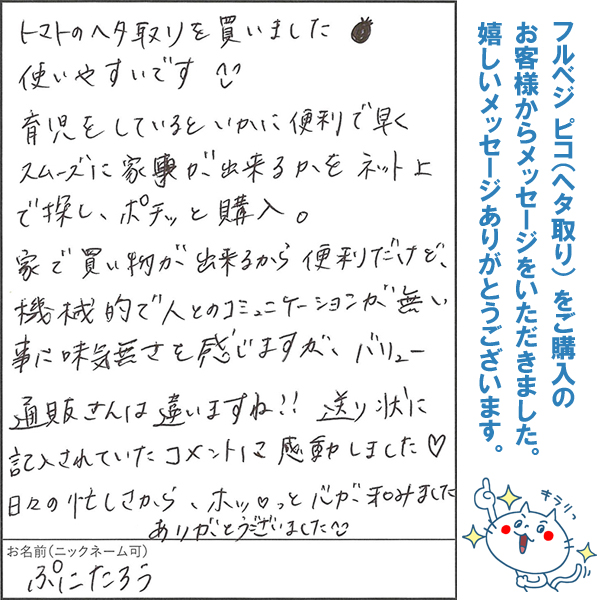 トマトのヘタ取りを買いました
使いやすいです
育児をしているといかに便利で早く
スムーズに家事が出来るかをネット上
で探し、ポチッと購入。
家で買い物が出来るから便利だけど、
機械的で人とのコミュニケーションが無い
事に味気無さを感じますが、バリュー
通販さんは違いますね!! 送り状に
記入されていたコメントに感動しました♡
日々の忙しさから、ホッ♡っと心が和みました
ありがとうございました
お名前(ニックネーム可)
ぷにたろう
フルベジ ピコ(ヘタ取り)をご購入の
お客様からメッセージをいただきました。
嬉しいメッセージありがとうございます。
キラリっ